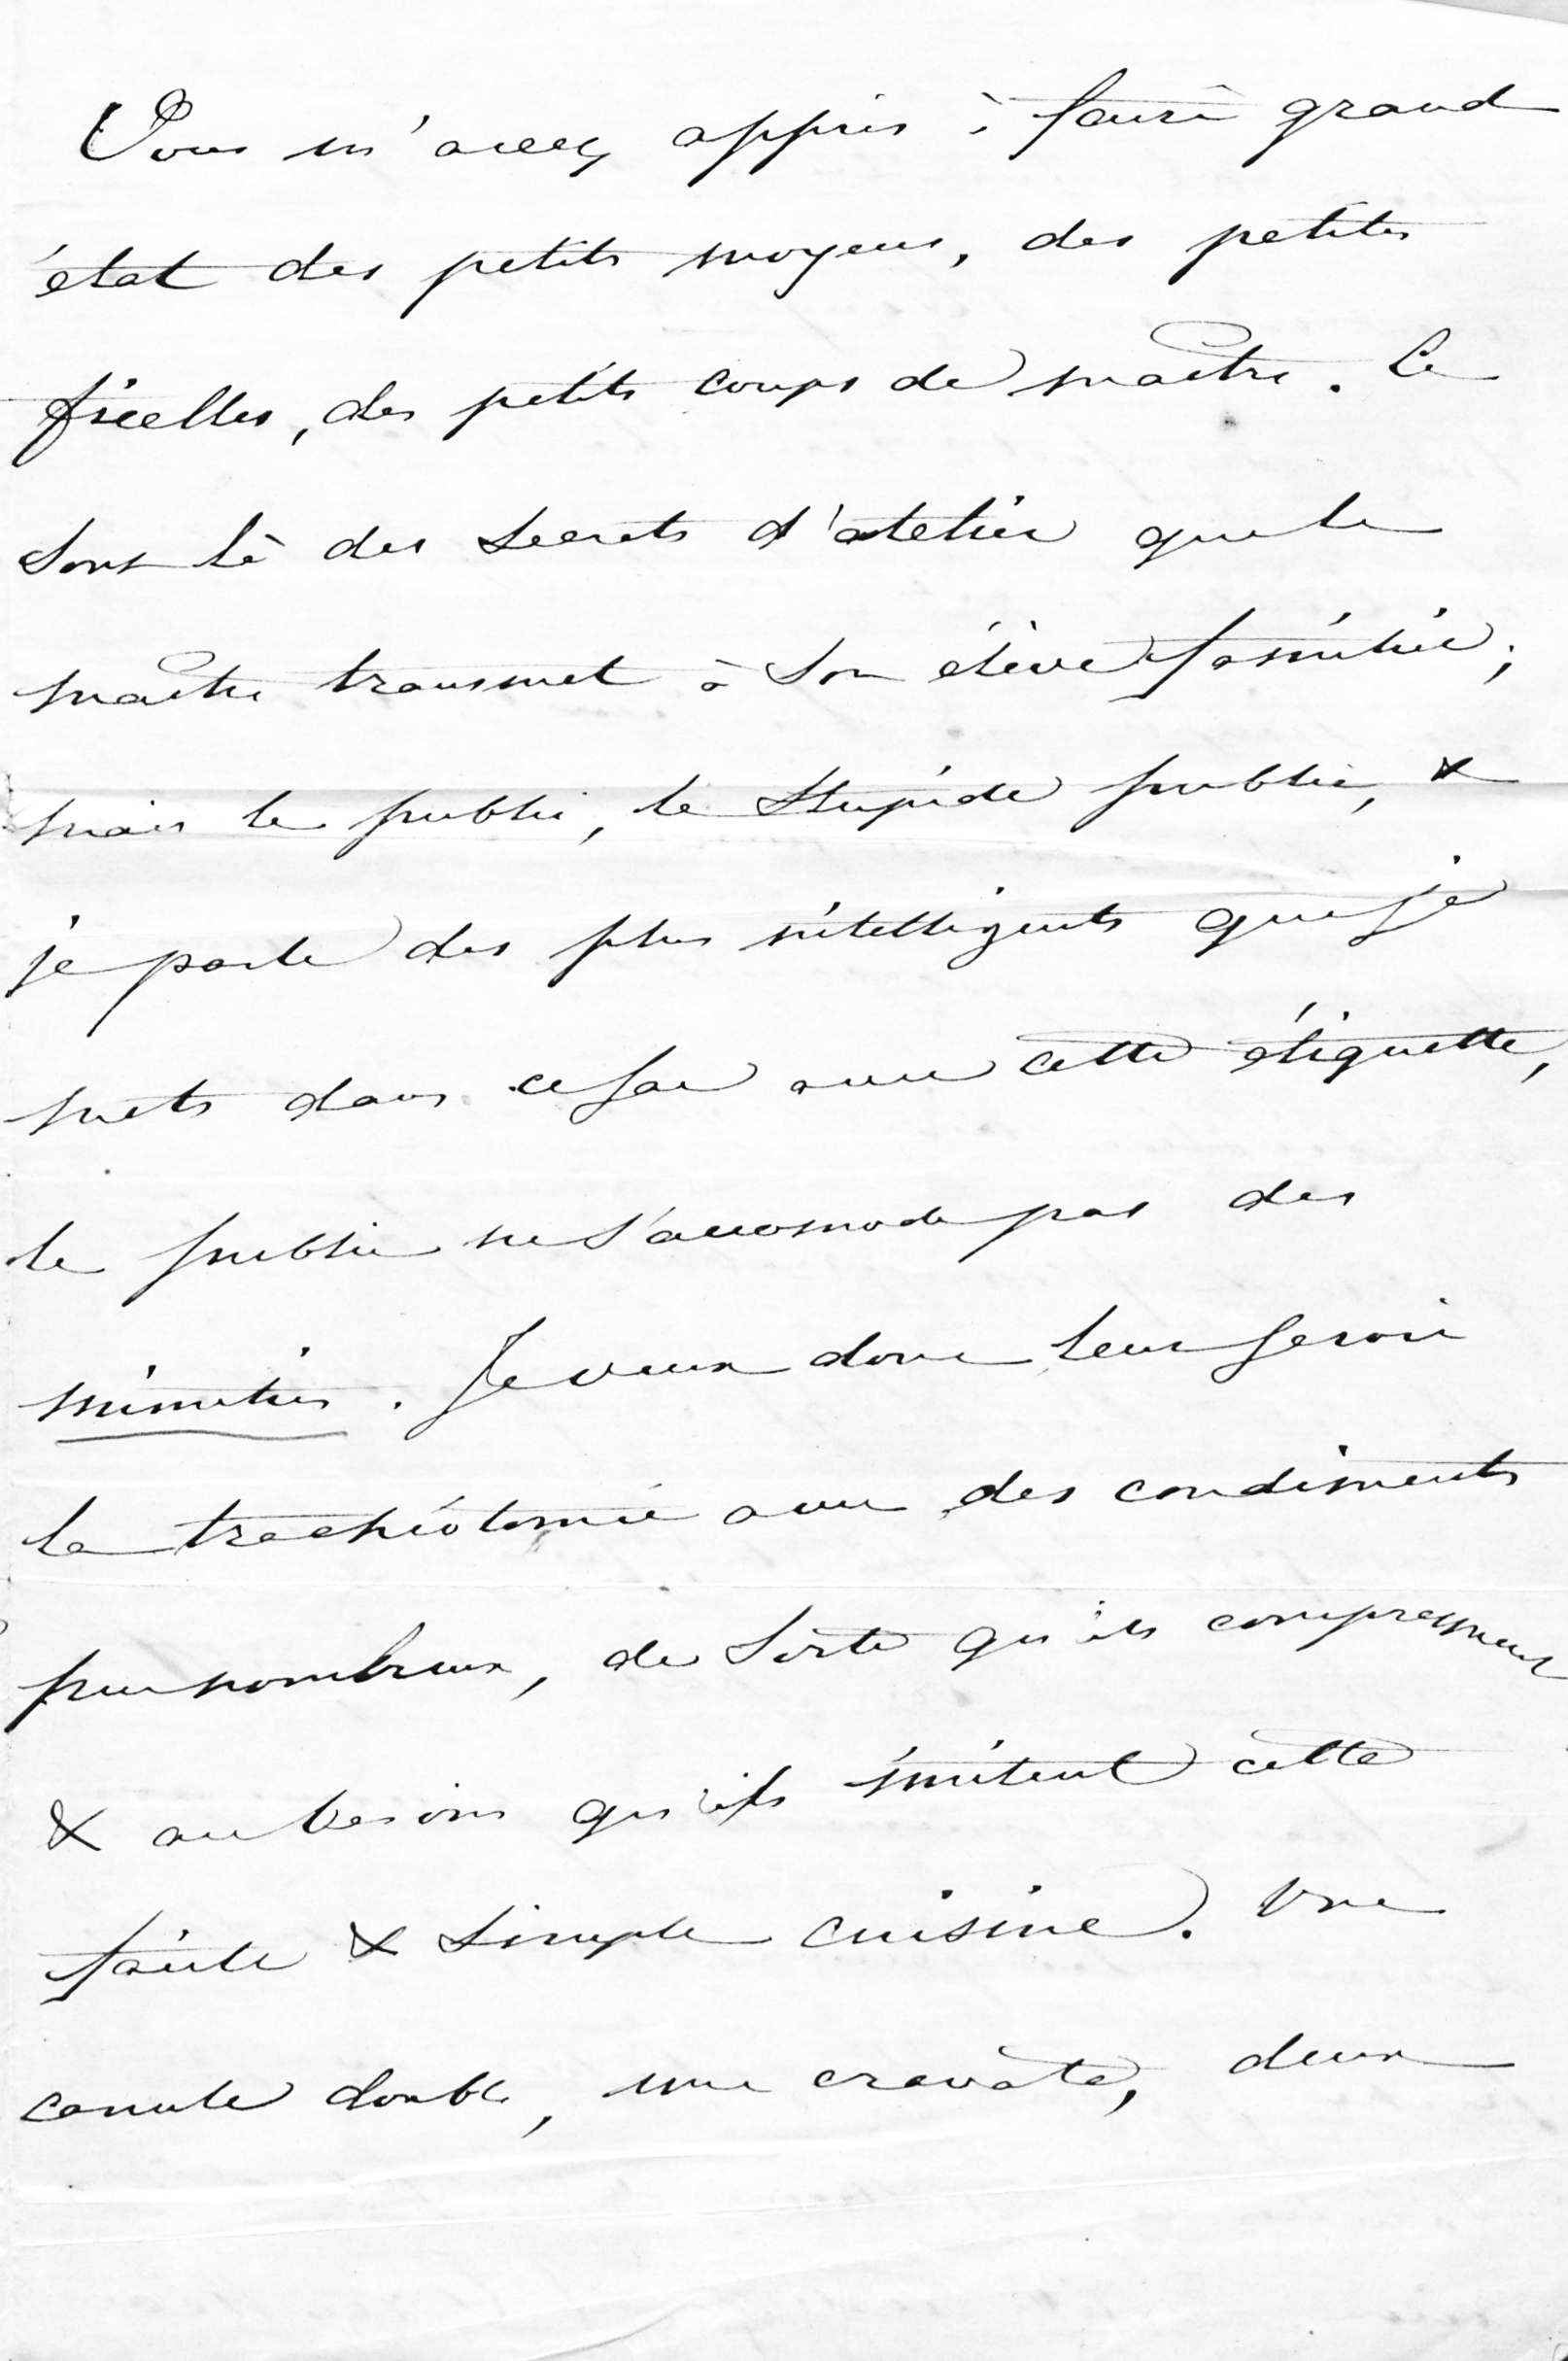 Vous m'avez appris à faire grand
état des petits moyens, des petites
ficelles, des petits coups de maître. Ce
sont là des secrets d'atelier que le
maître transmet à son élève familier;
mais le public, le stupide public, &
je parle des plus intelligents que je
mets dans ce sac avec cette étiquette,
le public ne s'accomode pas des
minuties. Je veux donc leur servir
la trachéotomie avec des condiments
peu nombreux, de sorte qu'ils comprennent
& au besoin qu'ils imitent cette
facile & simple cuisine. Une
canule double, une cravate, deux